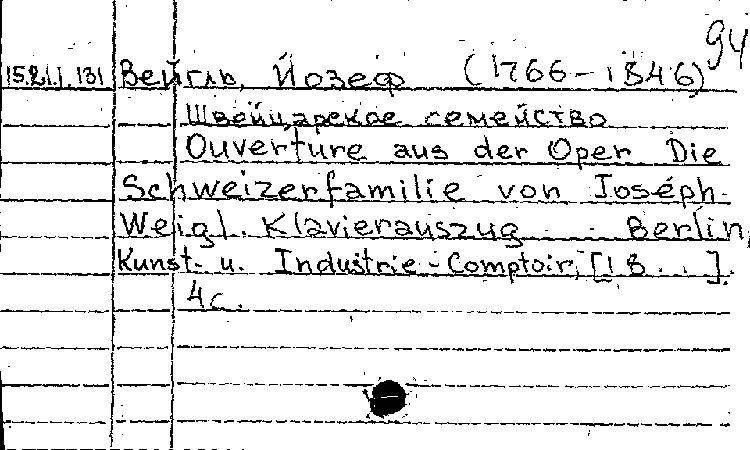 94
15.21.1.131 Вейгль, Йозеф (1766-1846)
Швейцарское семейство
Ouverture aus der Oper Die
Schweizerfamilie von Joséph
Weigl. Klavierauszug. Berlin,
Kunst- u. Industrie-Comptoir, [18...].
4с.